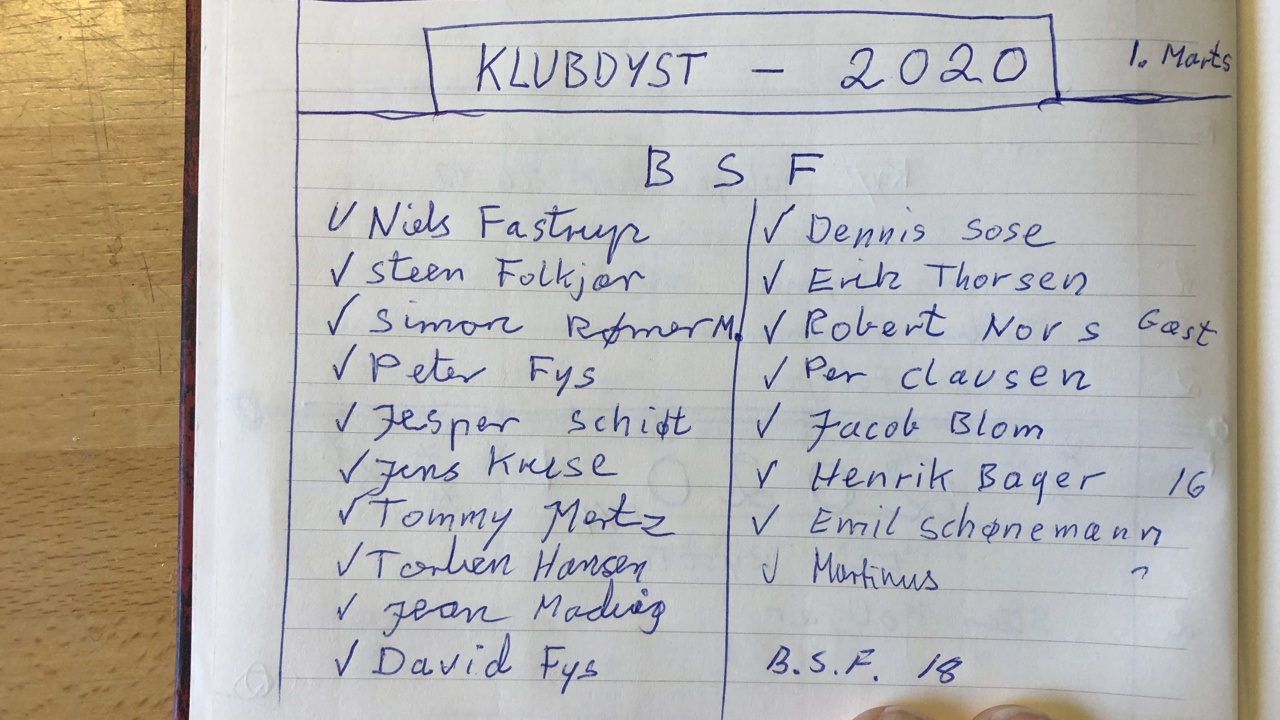 KLUBDYST - 2020
1. Marts
B S F
✓ Niels Fastrup
✓ Steen Folkjær
✓ Simon Rømer M.
✓ Peter Fys
✓ Jesper Schiøt
✓ Jens Kruse
✓ Tommy Mertz
✓ Torben Hansen
✓ Jean Madvig
✓ David Fys
✓ Dennis Sose
✓ Erik Thorsen
✓ Robert Nors Gæst
✓ Per Clausen
✓ Jacob Blom
✓ Henrik Bager 16
✓ Emil Schønemann
✓ Martinus "
B.S.F. 18